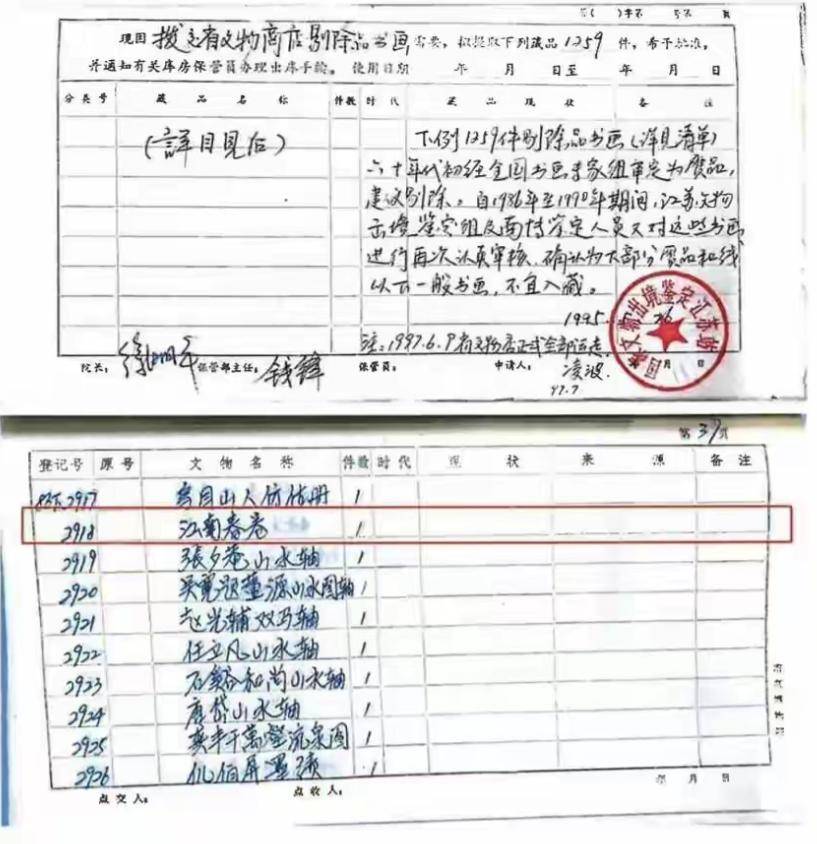 第( )字第 号第 页
现因 拨交有文物商店剔除品书画 需要，拟提取下列藏品 1259 件，希予批准，
并通知有关库房保管员办理出库手续。使用日期 年 月 日至 年 月 日
分类号 藏品名称 件数 时代 藏品现状 备注
(詳目見后)
下例1259件剔除品书画(详见清单)
六十年代初经全国书画专家组审定为赝品，
建议剔除。自1986年至1990年期间，江苏文物
出境鉴定组及南博鉴定人员又对这些书画
进行再次认真审核，确认为大部分赝品和线
以下一般书画，不宜入藏。
1995.
注：1997.6.9
国家文物出境鉴定江苏站
院长： 徐湖平 保管部主任： 钱锋 保管员： 申请人： 凌波
97.7.
第 37 页
登记号 原号 文物名称 件数 时代 现状 来源 备注
2917 1
2918 江南春卷 1
2919 張夕菴山水轴 1
2920 吴寬題董源山水图轴 1
2921 赵光辅双马轴 1
2922 任立凡山水轴 1
2923 石谿和尚山水轴 1
2924 唐岱山水轴 1
2925 萬壑流泉图 1
2926 1
点交人： 点收人： 年 月 日